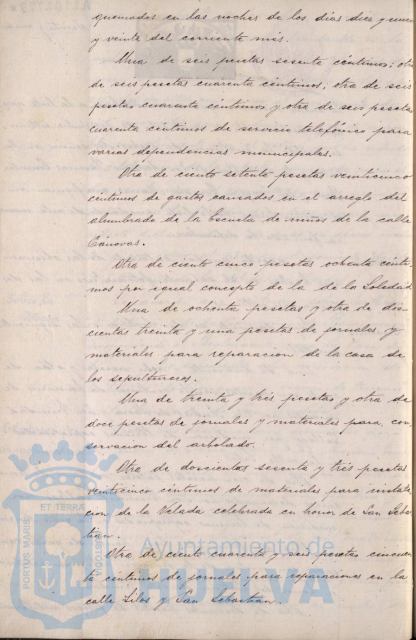 quemados en las noches de los dias diez y nueve
y veinte del corriente mes.
Una de seis pesetas sesenta céntimos; otra
de seis pesetas cuarenta céntimos; otra de seis
pesetas cuarenta céntimos y otra de seis pesetas
cuarenta céntimos de servicio telefónico para
varias dependencias municipales.
Otra de ciento setenta pesetas veinticinco
céntimos de gastos causados en el arreglo del
alumbrado de la Escuela de niños de la calle
Cánovas.
Otra de ciento cinco pesetas ochenta cénti-
mos por igual concepto de la de la Soledad
Una de ochenta pesetas y otra de dos-
cientas treinta y una pesetas de jornales y
materiales para reparacion de la casa de
los sepultureros.
Una de treinta y tres pesetas y otra de
doce pesetas de jornales y materiales para con
servacion del arbolado.
Otra de doscientas sesenta y tres pesetas
veinticinco céntimos de materiales para instala
cion de la Velada celebrada en honor de San Sebas
tian.
Otra de ciento cuarenta y seis pesetas cincuen
ta céntimos de jornales para reparaciones en la
calle Silos y San Sebastian.
PORTUS MARIS
ET TERRAE
CUSTODIA
Ayuntamiento de
HUELVA